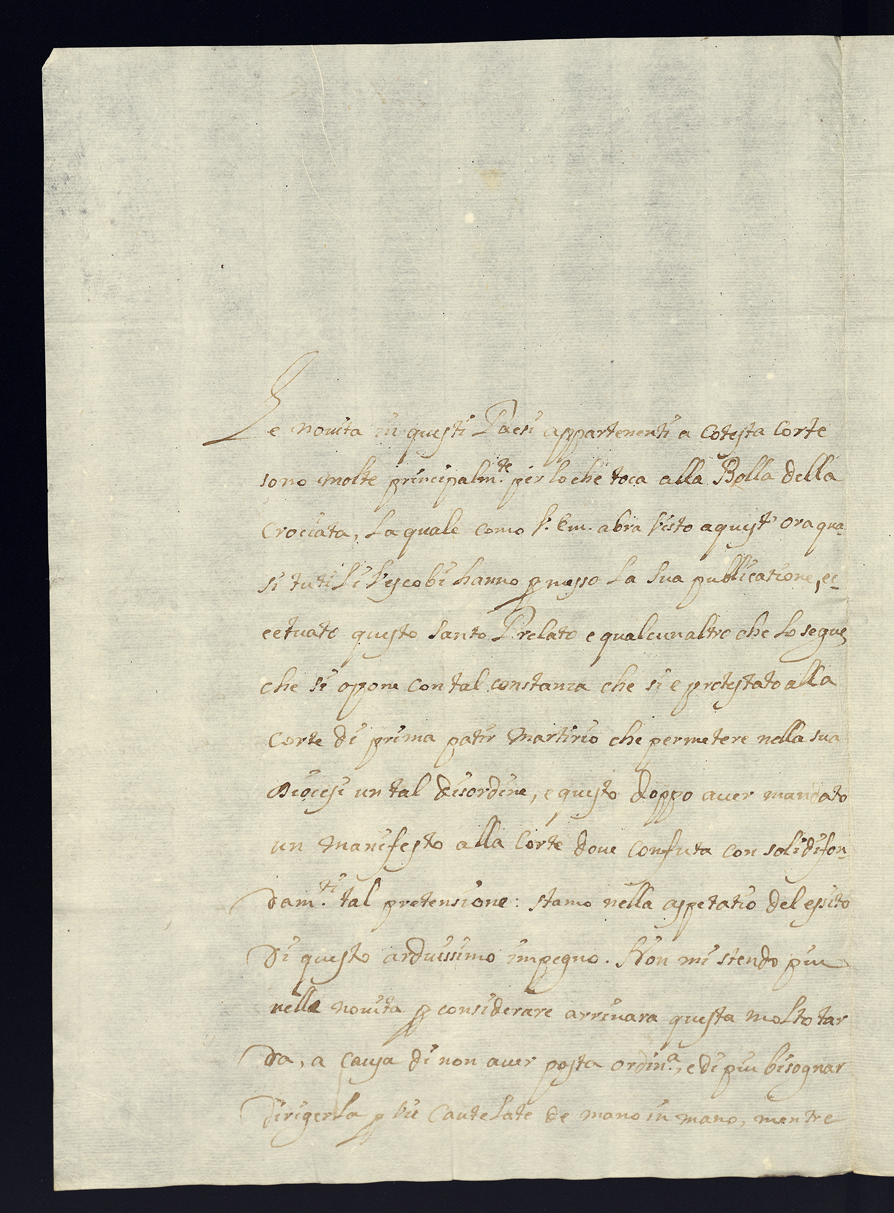 Le novita in questi Paesi appartenenti a cotesta Corte
sono molte principalm.te per lo che toca alla Bolla della
Crociata, la quale como V. Em. abra visto a quest' ora qua
si tuti li Vescobi hanno pmesso la sua publicatione, ec-
cetuato questo Santo Prelato e qualcun altro che lo segue,
che si opone con tal constanza che si e protestato alla
Corte di prima patir Martirio che permetere nella sua
Diocesi un tal disordine, e questo doppo aver mandato
un Manifesto alla Corte dove confuta con solidi fon
dam.ti tal pretensione: stamo nella aspetatio del essito
di questo arduissimo impegno. Non mi stendo piu
nelle novita p considerare arrivara questa molto tar
da, a causa di non aver posta ordin.a, e di piu bisognar
dirigerla p vie cautelate de mano in mano, mentre